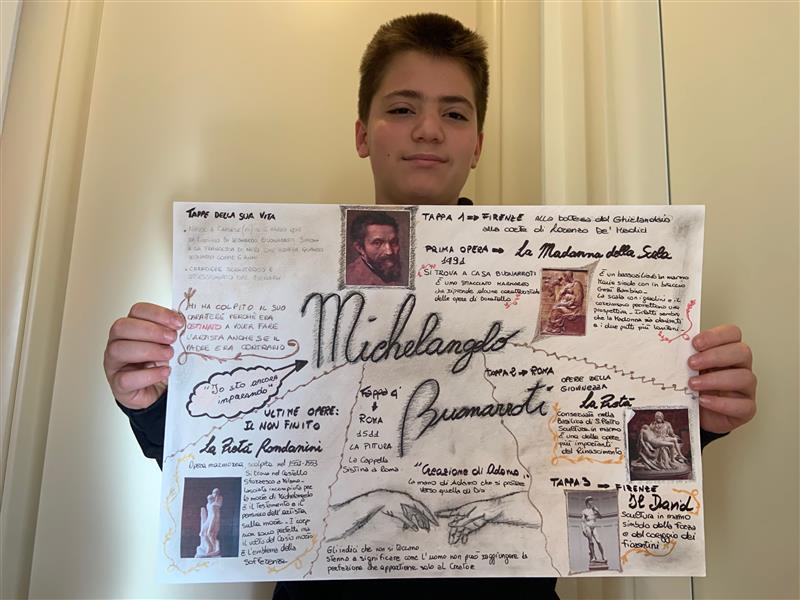 TAPPE DELLA SUA VITA
LEONARDO COME 6 ANNI
CARATTERE SCONTROSO E
MI HA COLPITO IL SUO
CARATTERE PERCHÈ ERA
OSTINATO A VOLER FARE
L'ARTISTA ANCHE SE IL
PADRE ERA CONTRARIO
"Io sto ancora
imparando"
TAPPA 1 ⇒ FIRENZE alla bottega del Ghirlandaio
alla corte di Lorenzo De' Medici
PRIMA OPERA ⇒ La Madonna della Scala
1491
SI TROVA A CASA BUONARROTI
È UNO STIACCIATO MARMOREO
che riprende alcune caratteristiche
delle opere di Donatello
È un bassorilievo in marmo
Maria siede con in braccio
Gesù Bambino.
La scala con i gradini e il
prospettiva. Infatti sembra
che la Madonna sia davanti
e i due putti più lontani.
Michelangelo
Buonarroti
TAPPA 2 ⇒ ROMA
OPERE DELLA
GIOVINEZZA
La Pietà
Conservata nella
Basilica di S. Pietro
Scultura in marmo
è una delle opere
più importanti
del Rinascimento
TAPPA 3 ⇒ FIRENZE
Il David
scultura in marmo
simbolo della forza
e del coraggio dei
fiorentini
Tappa 4
ROMA
1511
LA PITTURA
La Cappella
Sistina a Roma
"Creazione di Adamo"
La mano di Adamo che si protrae
verso quella di Dio
Gli indici che non si toccano
stanno a significare come l'uomo non può raggiungere la
perfezione che appartiene solo al Creatore
ULTIME OPERE:
IL NON FINITO
La Pietà Rondanini
Opera marmorea scolpita nel 1552-1553
Si trova nel Castello
Sforzesco a Milano.
Lasciata incompiuta per
la morte di Michelangelo
È il Testamento e il
pensiero dell'artista
sulla morte. I corpi
non sono perfetti ma
il volto del Cristo morto
è l'emblema della
sofferenza